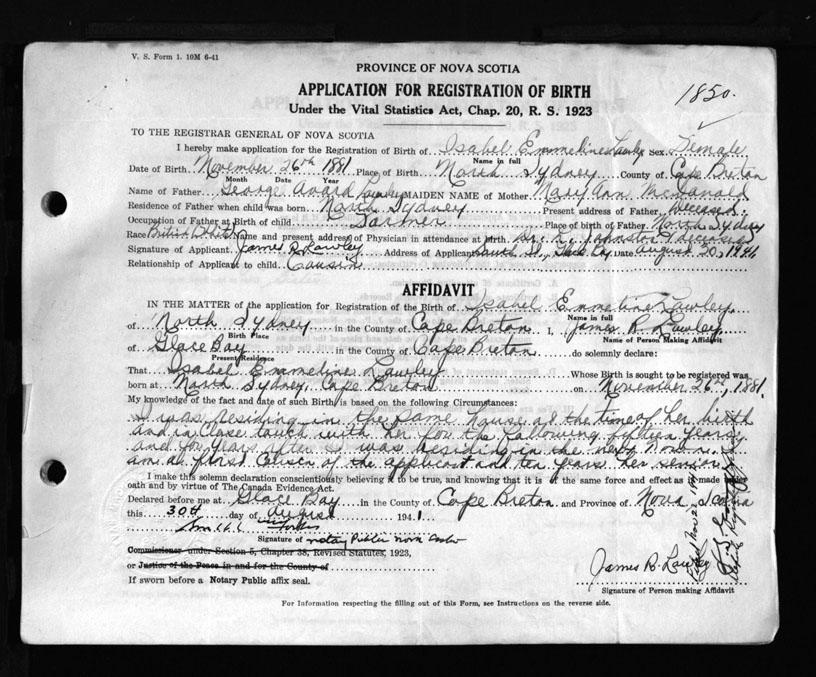 V. S. Form 1. 10M 6-41
PROVINCE OF NOVA SCOTIA
APPLICATION FOR REGISTRATION OF BIRTH
1850.
Under the Vital Statistics Act, Chap. 20, R. S. 1923
TO THE REGISTRAR GENERAL OF NOVA SCOTIA
I hereby make application for the Registration of Birth of Isabel Emmeline Lawley Sex Female
Name in full
Date of Birth November 26th 1881 Place of Birth North Sydney County of Cape Breton
Month Date Year
Name of Father George Avard Lawley MAIDEN NAME of Mother Mary Ann McDonald
Residence of Father when child was born North Sydney Present address of Father Deceased.
Occupation of Father at Birth of child Place of birth North Sydney
Race British White Name and present address of Physician in attendance at birth. Dr. Johnston Deceased
Signature of Applicant James R. Lawley Address of Applicant South St., Glace Bay Date August 30, 1941
Relationship of Applicant to child Cousin
AFFIDAVIT
IN THE MATTER of the application for Registration of the Birth of Isabel Emmeline Lawley
Name in full
of North Sydney in the County of Cape Breton I, James R. Lawley
Birth Place Name of Person Making Affidavit
of Glace Bay in the County of Cape Breton do solemnly declare:
Present Residence
That Isabel Emmeline Lawley Whose Birth is sought to be registered was
born at North Sydney, Cape Breton on November 26th, 1881.
My knowledge of the fact and date of such Birth is based on the following Circumstances:
I was residing in the same house at the time of her birth
and in close touch with her for the following fifteen years
and for years after I was residing in the next house.
am a first cousin of the applicant and ten years her senior
I make this solemn declaration conscientiously believing it to be true, and knowing that it is of the same force and effect as if made
oath and by virtue of The Canada Evidence Act.
Declared before me at Glace Bay in the County of Cape Breton and Province of Nova Scotia
this 30th day of August 1941.
Signature of Notary Public Nova Scotia
Commissioner under Section 5, Chapter 38, Revised Statutes, 1923,
or Justice of the Peace in and for the County of
James R. Lawley
If sworn before a Notary Public affix seal.
Signature of Person making Affidavit
For Information respecting the filling out of this Form, see Instructions on the reverse side.